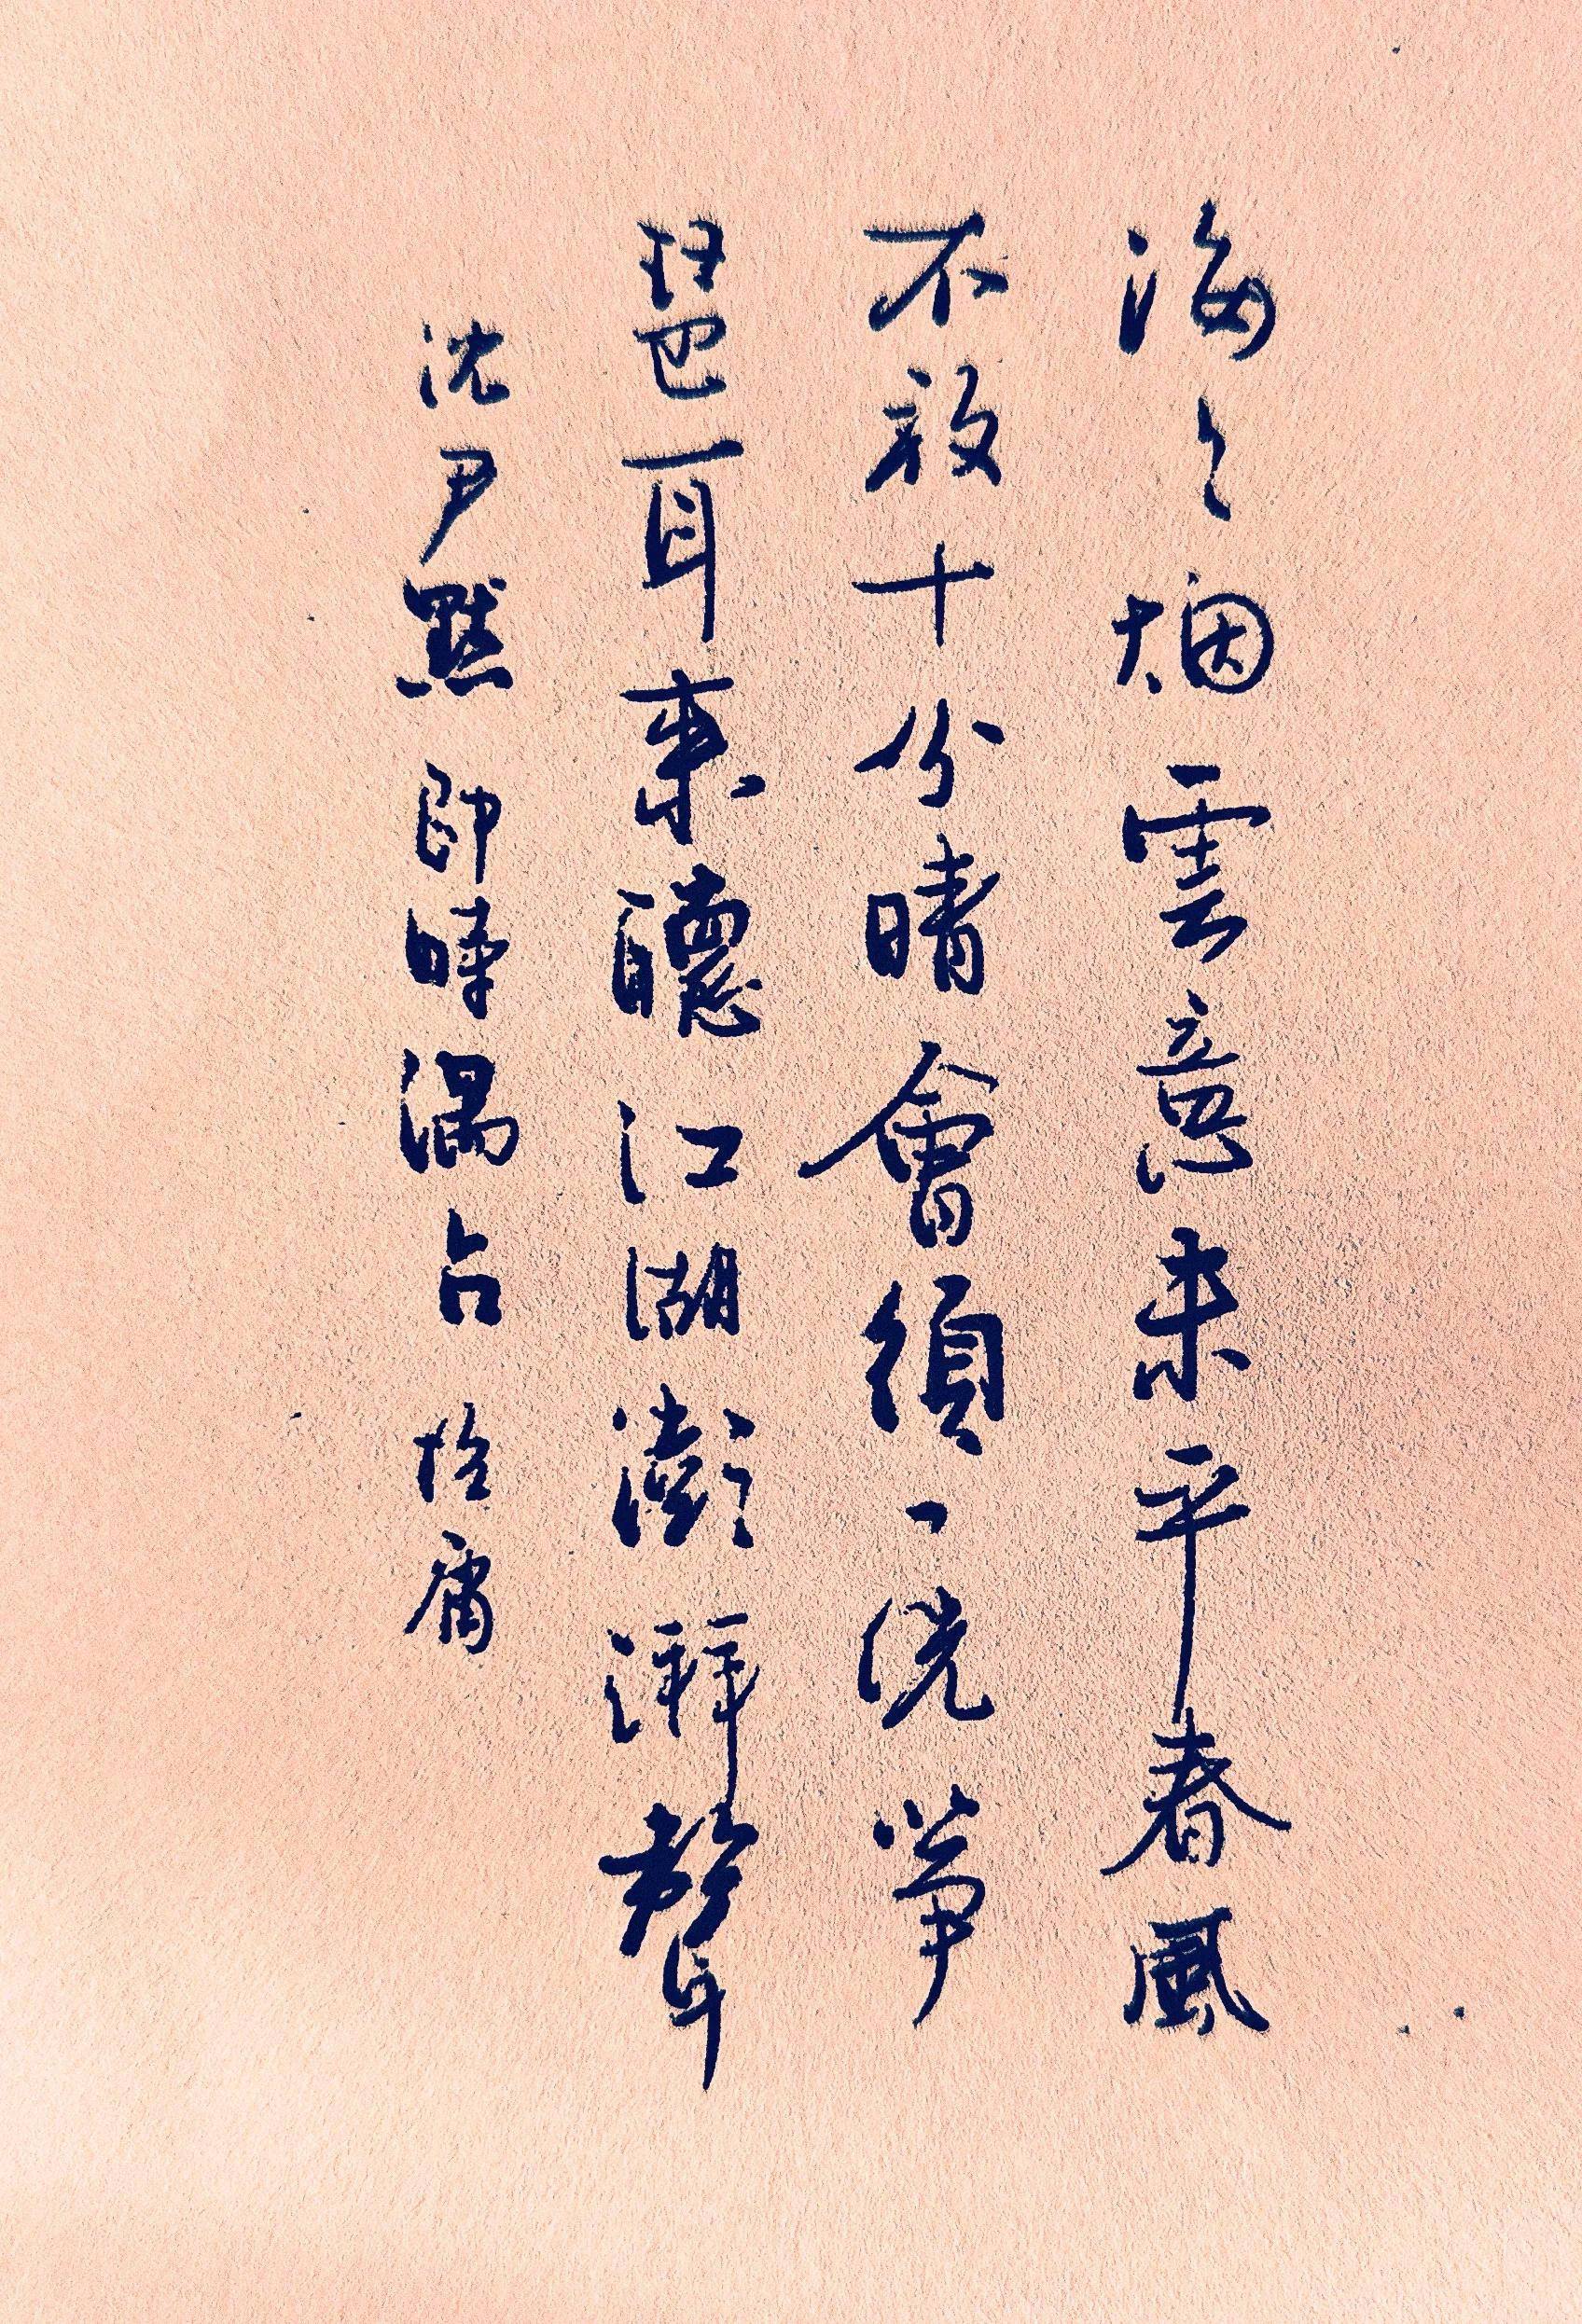 海々烟雲意未平春風
不放十分晴會須一洗箏
琶耳來聽江湖澎湃聲
沈尹默即時漏占 恪庸